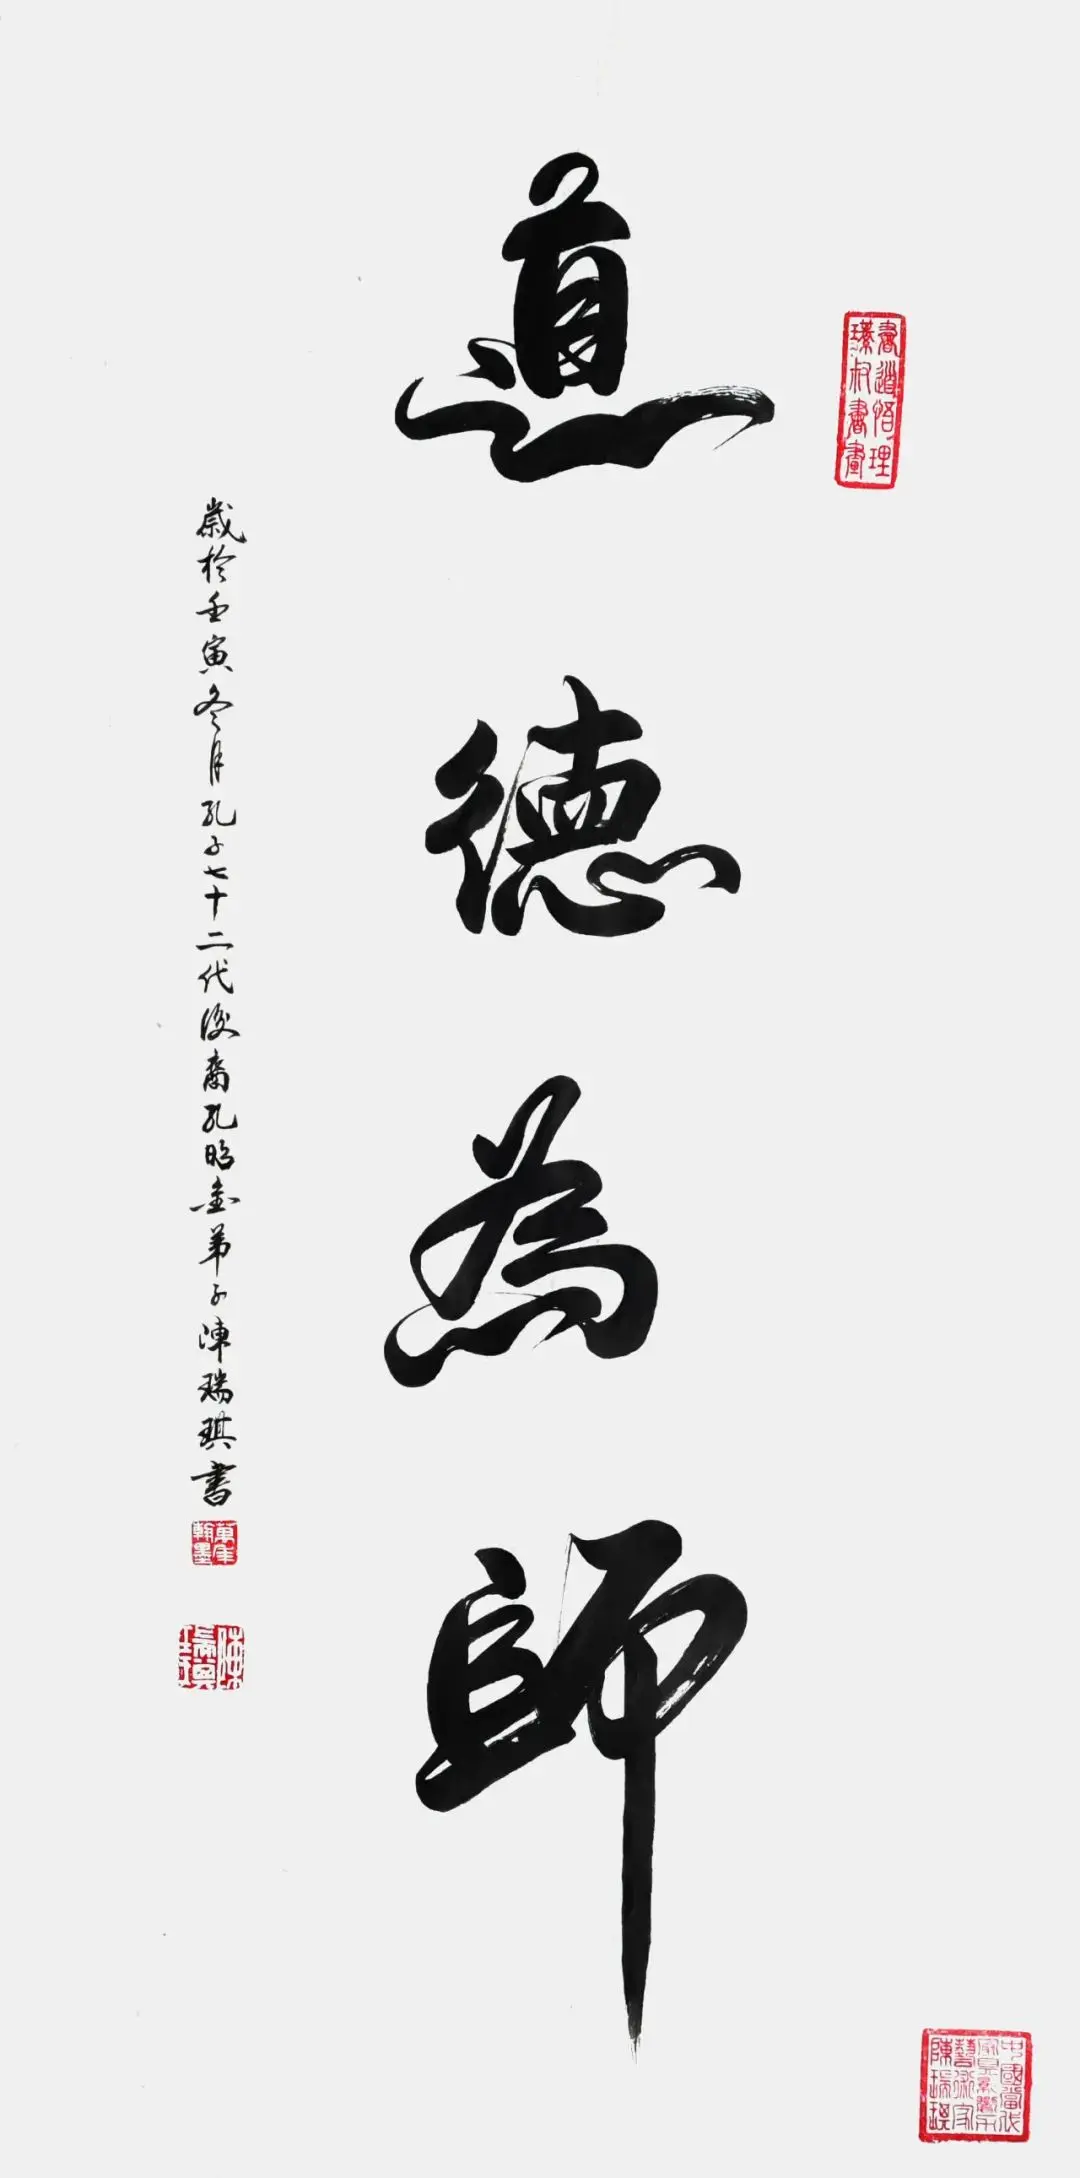 道德為師
歲於壬寅冬月孔子七十二代後裔孔昭金弟子陳瑞琪書
書道悟理
璞叔書畫
萬年
翰墨
陳瑞琪
中國當代
藝術家
陳瑞琪